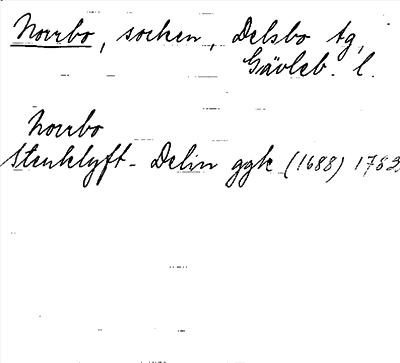 Norrbo, socken, Delsbo tg,
Gävleb. l.
Norrbo
Stenklyft - Delin ggk (1688) 1783